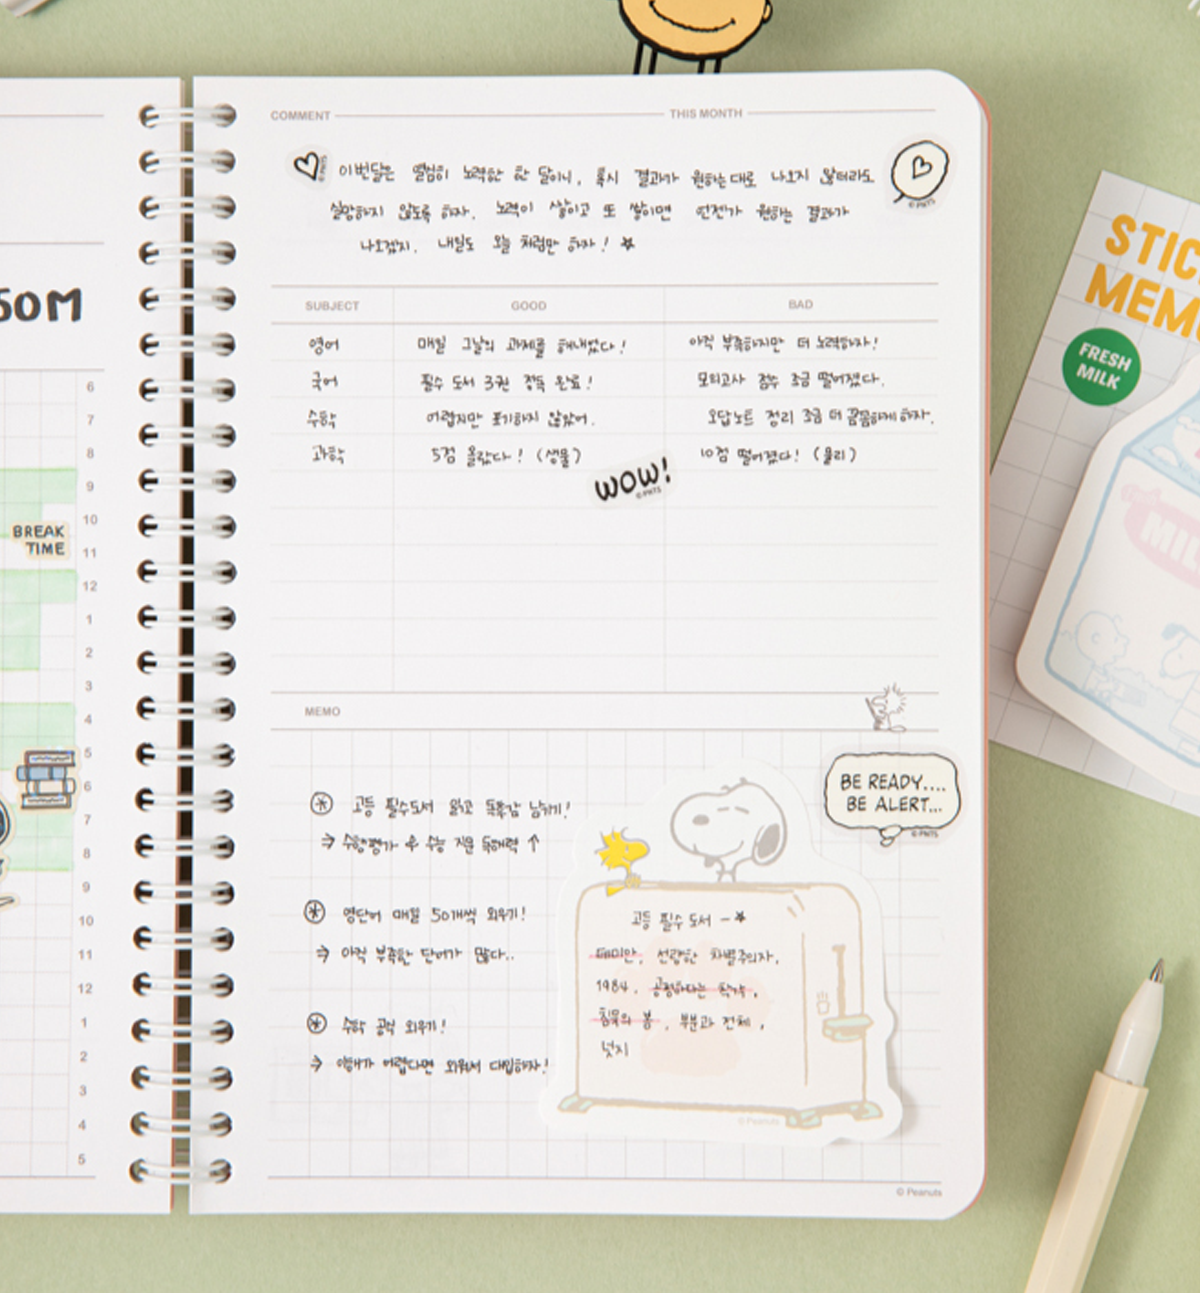 50M
COMMENT THIS MONTH
이번달은 열심히 노력한 한 달이니, 혹시 결과가 원하는대로 나오지 않더라도
실망하지 않도록 하자. 노력이 쌓이고 또 쌓이면 언젠가 원하는 결과가
나오겠지. 내일도 오늘 처럼만 하자!
SUBJECT GOOD BAD
영어 매일 그날의 과제를 해내었다! 아직 부족하지만 더 노력하자!
국어 필수 도서 3권 정독 완료! 모의고사 점수 조금 떨어졌다.
수학 어렵지만 포기하지 않았어. 오답노트 정리 조금 더 꼼꼼하게 하자.
과학 5점 올랐다! (생물) 10점 떨어졌다! (물리)
WOW!
© PNTS
MEMO
BE READY....
BE ALERT...
© PNTS
고등 필수도서 읽고 독후감 남기기!
→ 수행평가 수능 지문 독해력 ↑
영단어 매일 50개씩 외우기!
→ 아직 부족한 단어가 많다..
수학 공식 외우기!
→ 이해가 어렵다면 외워서 대입하자!
고등 필수 도서 -
데미안, 선량한 차별주의자,
1984, 공정하다는 착각,
침묵의 봄, 부분과 전체,
넛지
© Peanuts
© Peanuts
6
7
8
9
10
11
12
1
2
3
4
5
6
7
8
9
10
11
12
1
2
3
4
5
BREAK
TIME
STIC
MEM
FRESH
MILK
MIL